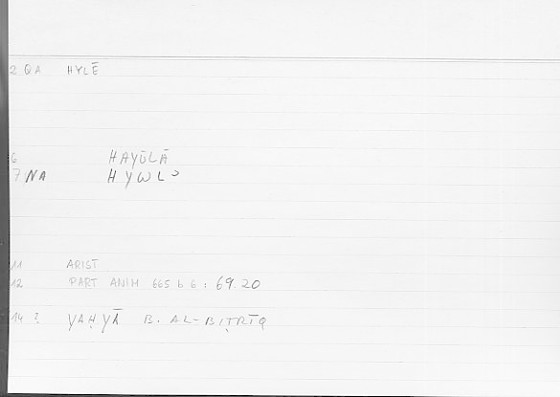 2 QA HYLĒ
6 HAYŪLĀ
7 NA HYWLᵓ
11 ARIST
12 PART ANIM 665 b 6 : 69.20
14 ? YAḤYĀ B. AL-BIṬRĪQ